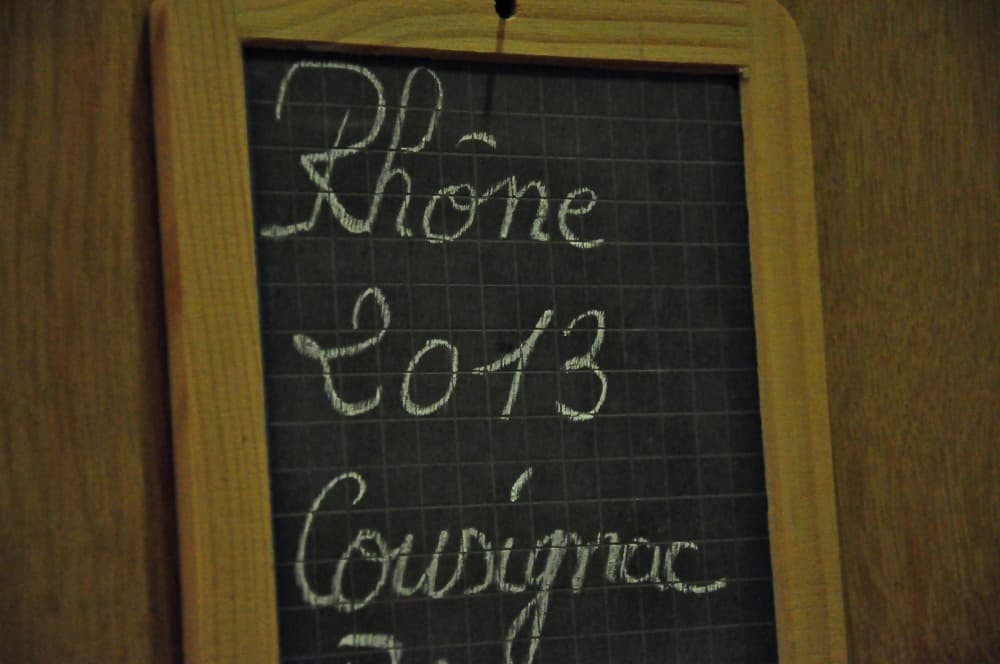 Rhône
2013
Cousignac